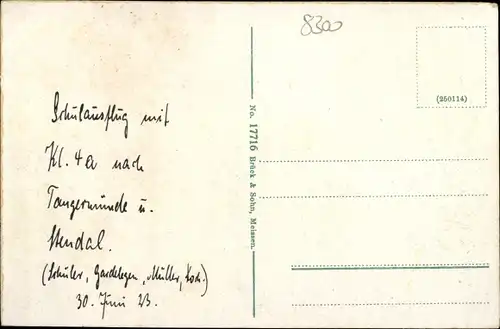 8300
(250114)
Schulausflug mit
Kl. 4a nach
Tangermünde u.
Stendal.
(Schüler, Gardelegen, Müller, Koch.)
30. Juni 23.
No. 17716 Brück & Sohn, Meissen.